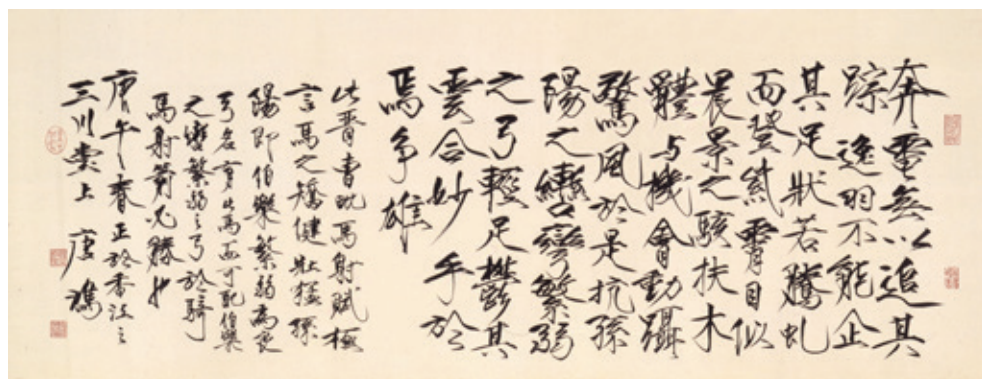 奔電無以追其
踪逸羽不能企
其足狀若騰虬
而登紫霄目似
晨景之駭扶木
體與機會動躡
驚風於是抗孫
陽之轡彎繁弱
之弓輕足鬱其
雲合妙手於
焉爭雄
此晉曹毗馬射賦極
言馬之矯健壯猛孫
陽即伯樂繁弱為良
弓名言此馬而可配伯樂
之轡繁弱之弓於騎
馬射箭必勝也
庚午之春正於香江之
三川堂上 唐鴻